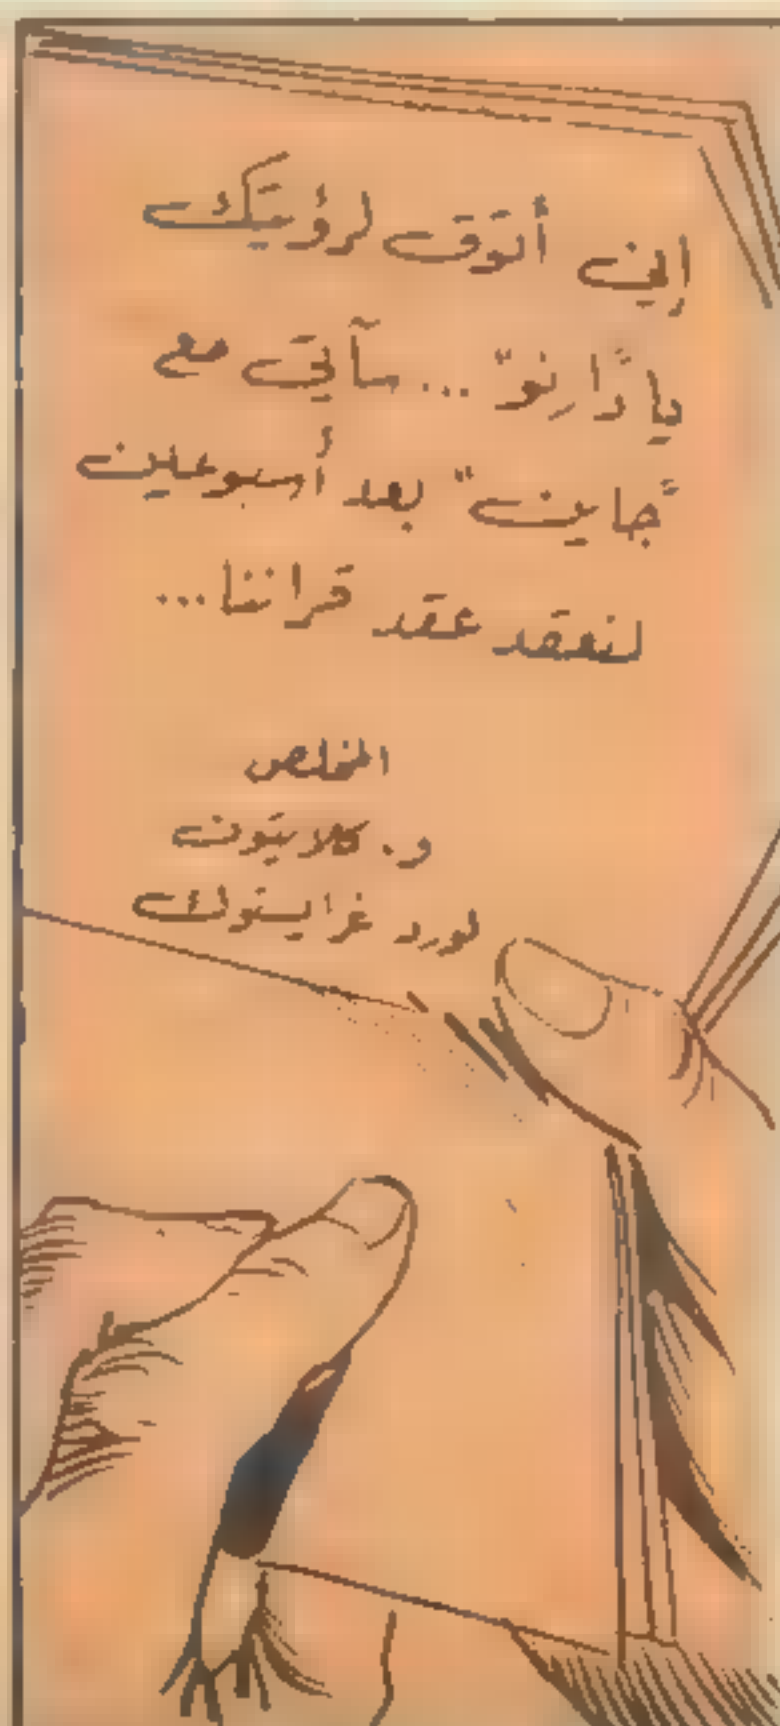 إني أتوق لرؤيتك
يا "دَارنو" ... سآتي مع
"جاين" بعد أسبوعين
لنعقد عقد قراننا...
المخلص
و. كلايتون
لورد غرايستوك